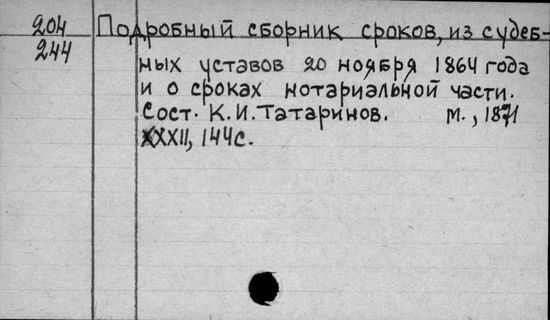 204 Подробный сборник сроков, из судеб-
244 ных уставов 20 ноября 1864 года
и о сроках нотариальной части.
Сост. К.И. Татаринов. М., 1871
XXXII, 144с.